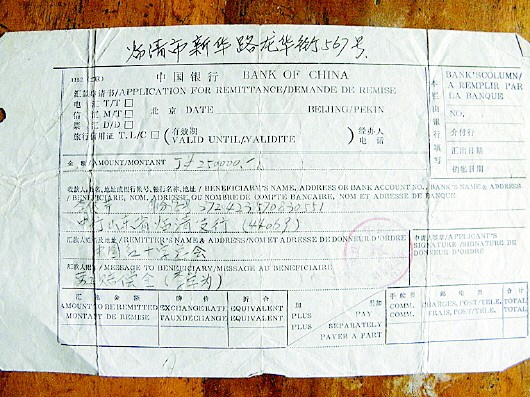 临清市新华路龙华街567号
中国银行 BANK OF CHINA
汇款申请书/APPLICATION FOR REMITTANCE/DEMANDE DE REMISE
电汇 T/T □
信汇 M/T □
票汇 D/D □
旅行信用证 T.L/C □
北京 DATE BEIJING/PEKIN
有效期
VALID UNTIL/VALIDITE
经办人
电话
金额/AMOUNT/MONTANT J¥250000.-
收款人姓名,地址或银行帐号,银行名称,地址/BENEFICIARY'S NAME, ADDRESS OR BANK ACCOUNT NO., BANK'S NAME & ADDRESS
/BENEFICIAIRE, NOM, ADRESSE OU NOMBRE DE COMPTE BANCAIRE, NOM ET ADRESSE DE BANQUE
中行山东省临清支行 (44069)
汇款人姓名及地址/REMITTER'S NAME & ADDRESS/NOM ET ADRESSE DE DONNEUR D'ORDRE
中国红十字会
汇款人附言/MESSAGE TO BENEFICIARY/MESSAGE AU BENEFICIAIRE
汇出金额
AMOUNT TO BE REMITTED
MONTANT DE REMISE
牌价
EXCHANGE RATE
TAUX D'ECHANGE
折合
EQUIVALENT
EQUIVALENT
加
PLUS
PLUS
另加
PAY
SEPARATELY
PAYER A PART
手续费
COMM.
COMM.
邮电费
CHARGES, POST/TELE.
FRAIS, POST/TELE.
合计
TOTAL
TOTAL
本栏由银行填写
BANK'S COLUMN/
A REMPLIR PAR
LA BANQUE
NO.
介付行
汇出日期
销账日期
申请人签章/APPLICANT'S
SIGNATURE/SIGNATURE DE
DONNEUR D'ORDRE